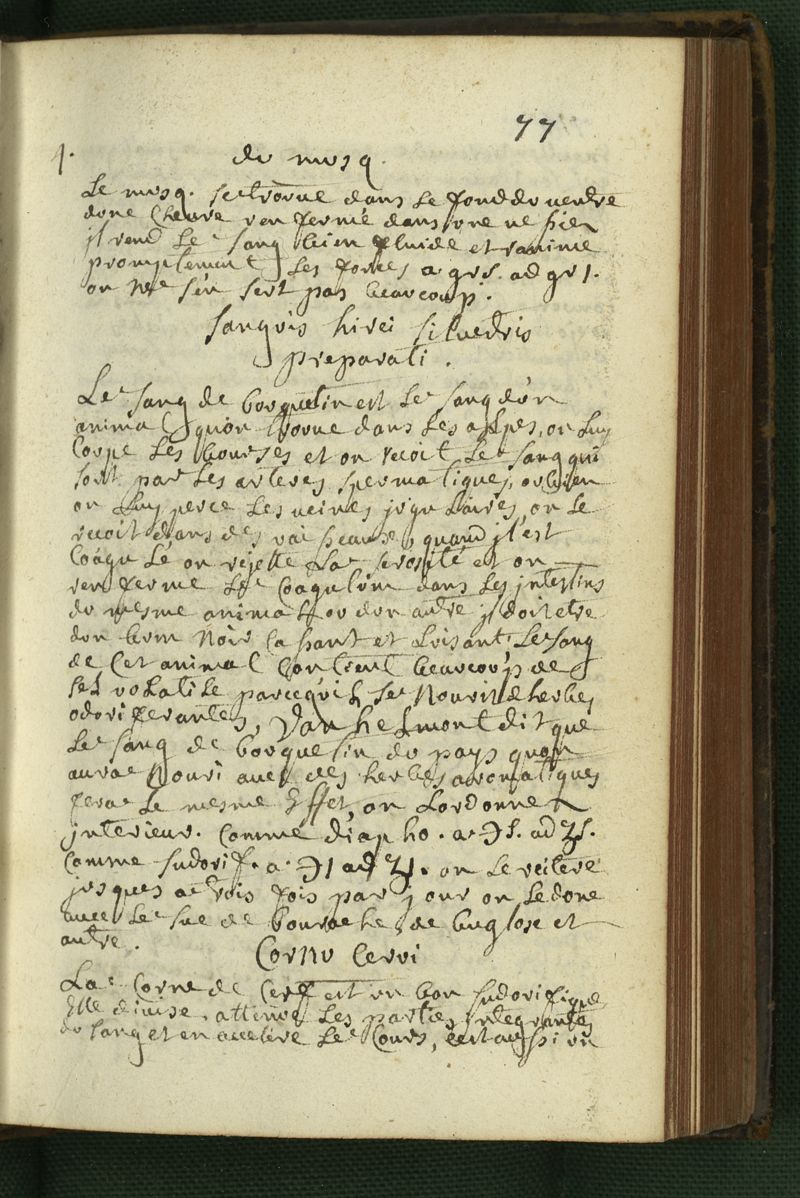 77
1. du musq.
Le musq. se trovue dans le fond du uentre
dune Cheure ren fermé dans vne ve ssie
jl rend Le sang bien fluide et ranime
promptement Les forces a grs. ad gr 1.
on ne sen sert pas beaucoup.
Sanguis hirci siluestris
preparati.
Le sang de bouquetin est Le sang dun
animal quon trovue dans Les alpes, on Luy
Coupe Les bourses et on recoit Le sang qui
sort par Les arteres spermatiques, oubien
on Luy perce Les ueines jugulaires, on Le
recoit dans des vaisseaux, quand jl est
Coagu Lé on rejette La serosité et on
ren ferme Le Coagulum dans Les jntestins
du mesme animal ou dun autre jl doit etre
dun brun Noir Cassant et Luisant, Le sang
de Cet animal Contient beaucoup de
sel volatile parcequil se Nourit dherbes
odoriferantes, Van helmont dit que
Le sang de bouquetin du pays quon
aura Nouri auec des herbes aromatiques
fera Le mesme Effet, on Lordonne
jnterieur. Comme diapho. a ℈s. ad ʒs.
Comme sudorif. a ℈1 ad ʒ1. on Le reitere
jusques a trois fois par jour on Le done
auec Le suc de bourache, de buglose et
autre.
Cornu Cerui
La Corne de Cerf est un bon sudorifique
Elle diuise, attenue Les parties jntegrantes
du sang et en accelere Le Cours, cest aussi un